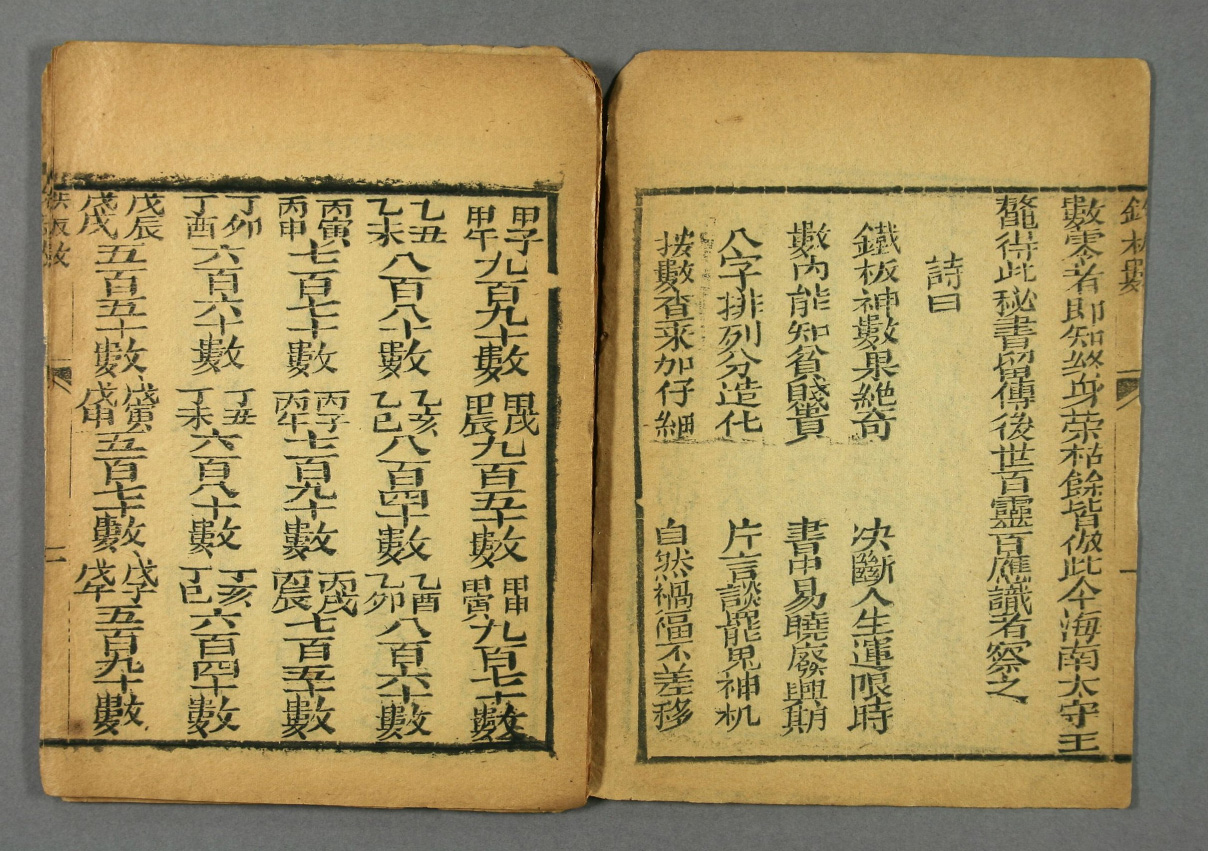 板數 一
數零者即知終身荣枯餘皆倣此今海南太守王
鰲得此秘書留傳後世百靈百應識者察之
詩曰
鐵板神數果絶奇 决斷人生運限時
數內能知貧賤貴 書中易曉廢興期
八字排列分造化 片言談罷鬼神机
按數查来加仔細 自然禍福不差移
甲子甲午九百九十數 甲戌甲辰九百五十數 甲申甲寅九百七十數
乙丑乙未八百八十數 乙亥乙巳八百四十數 乙酉乙卯八百六十數
丙寅丙申七百七十數 丙子丙午七百九十數 丙戌丙辰七百五十數
丁卯丁酉六百六十數 丁丑丁未六百八十數 丁亥丁巳六百四十數
戊辰戊戌五百五十數 戊寅戊申五百七十數 戊子戊午五百九十數
板數 二